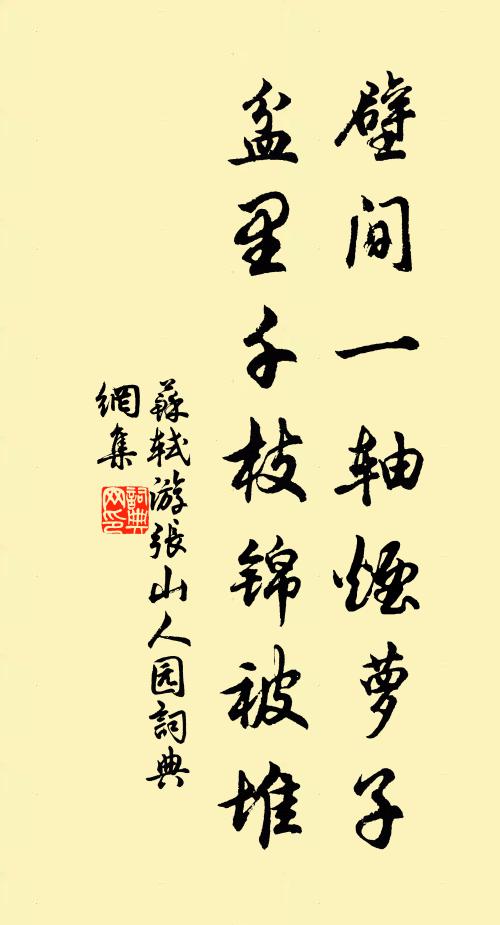 壁间一轴煙萝子
盆里千枝锦被堆
蘇轼游張山人园詞典
網集
詞典
网印